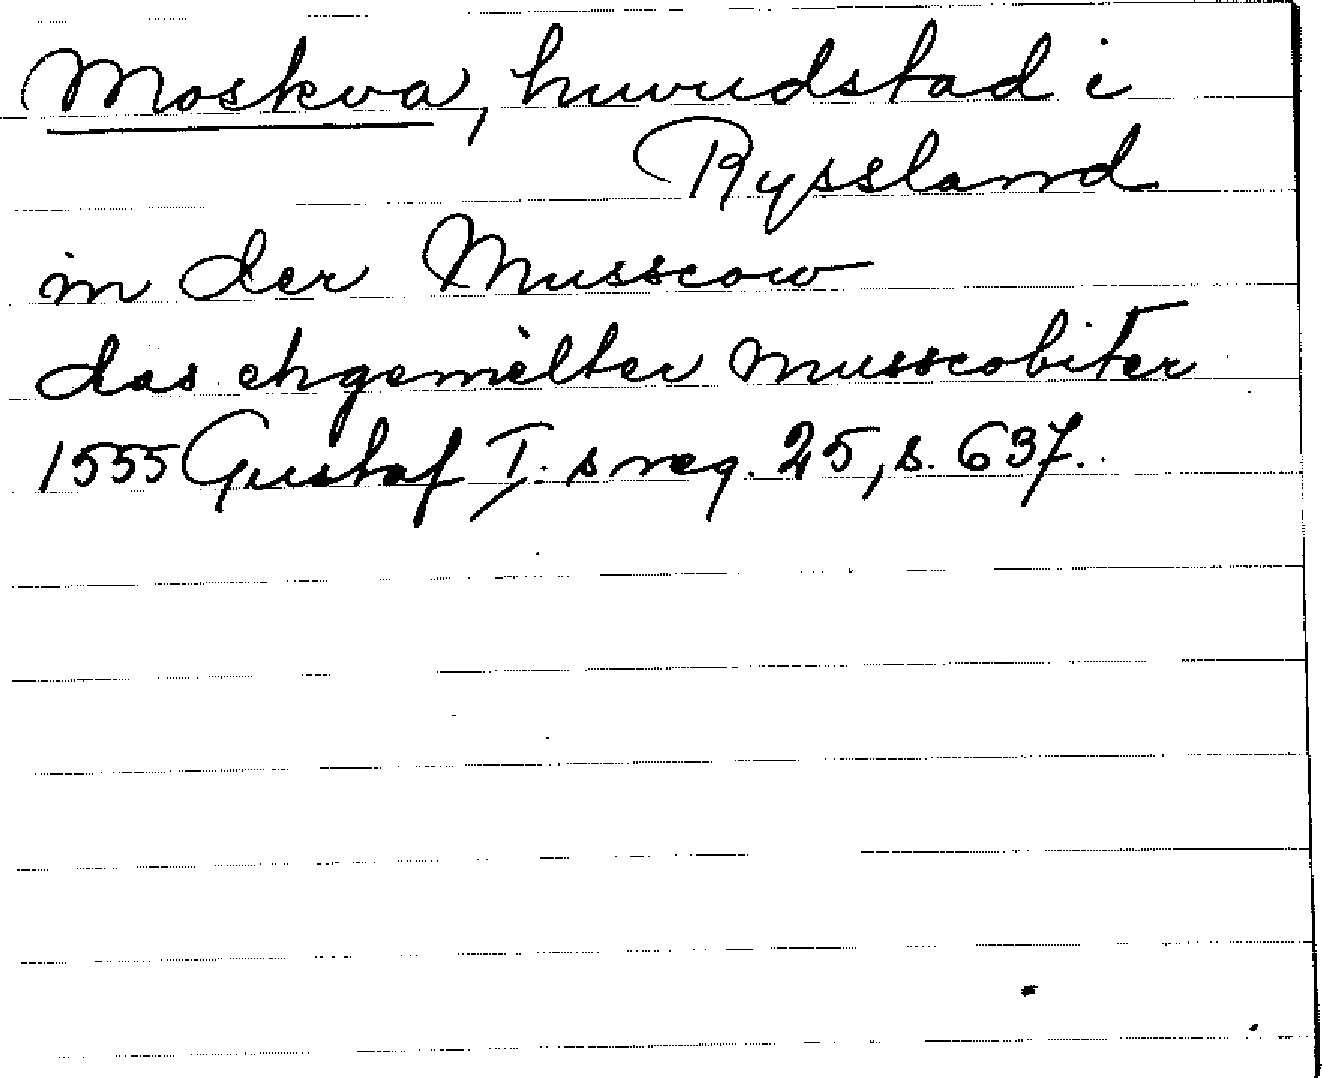 Moskva, huvudstad i
Ryssland
in der Musscow
das ehgemèlter musscobiter
1555 Gustaf I:s reg. 25, s. 637.